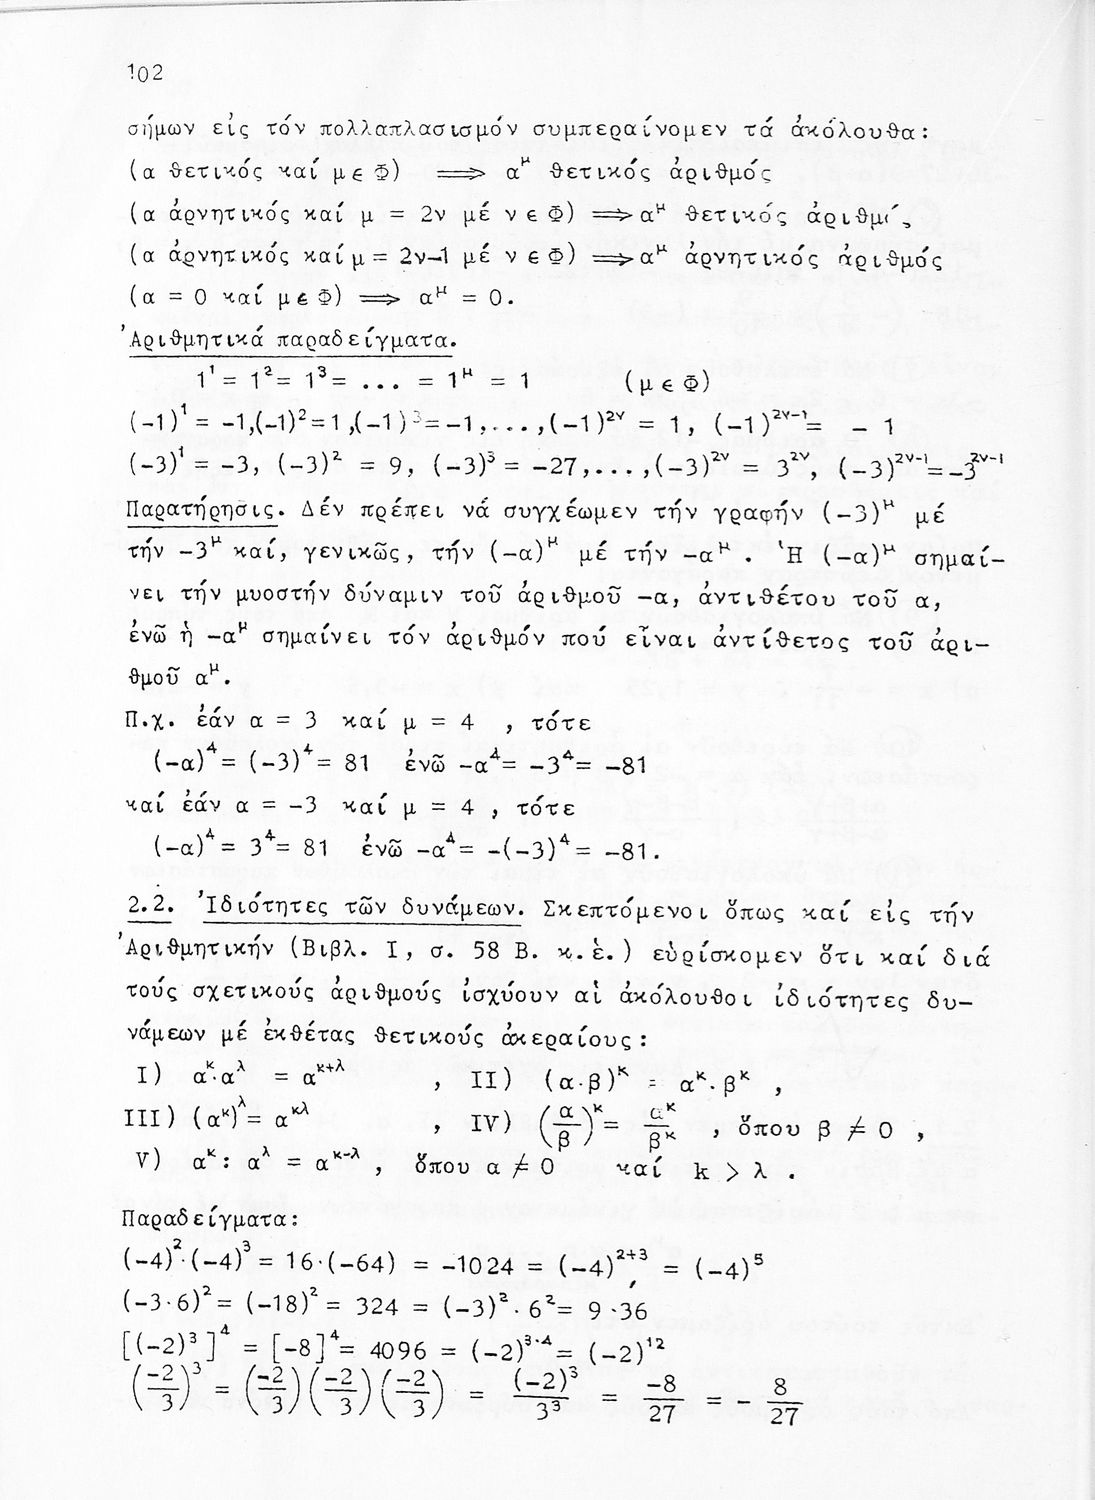 102
σήμων εἰς τόν πολλαπλασισμόν συμπεραίνομεν τά ἀκόλουθα:
(α θετικός καί μ ∈ Φ) ⟹ α^μ θετικός ἀριθμός
(α ἀρνητικός καί μ = 2ν μέ ν ∈ Φ) ⟹ α^μ θετικός
(α ἀρνητικός καί μ = 2ν-1 μέ ν ∈ Φ) ⟹ α^μ ἀρνητικός ἀριθμός
(α = 0 καί μ ∈ Φ) ⟹ α^μ = 0.
Ἀριθμητικά παραδείγματα.
1^1 = 1^2 = 1^3 = ... = 1^μ = 1 (μ ∈ Φ)
(-1)^1 = -1,(-1)^2=1,(-1)^3=-1,...,(-1)^{2ν} = 1, (-1)^{2ν-1}= - 1
(-3)^1 = -3, (-3)^2 = 9, (-3)^3 = -27,...,(-3)^{2ν} = 3^{2ν}, (-3)^{2ν-1}=-3^{2ν-1}
Παρατήρησις. Δέν πρέπει νά συγχέωμεν τήν γραφήν (-3)^μ μέ
τήν -3^μ καί, γενικῶς, τήν (-α)^μ μέ τήν -α^μ . Ἡ (-α)^μ σημαί-
νει τήν μυοστήν δύναμιν τοῦ ἀριθμοῦ -α, ἀντιθέτου τοῦ α,
ἐνῶ ἡ -α^μ σημαίνει τόν ἀριθμόν πού εἶναι ἀντίθετος τοῦ ἀρι-
θμοῦ α^μ.
Π.χ. ἐάν α = 3 καί μ = 4 , τότε
(-α)^4 = (-3)^4 = 81 ἐνῶ -α^4 = -3^4 = -81
καί ἐάν α = -3 καί μ = 4 , τότε
(-α)^4 = 3^4 = 81 ἐνῶ -α^4 = -(-3)^4 = -81.
2.2. Ἰδιότητες τῶν δυνάμεων. Σκεπτόμενοι ὅπως καί εἰς τήν
Ἀριθμητικήν (Βιβλ. I, σ. 58 Β. κ.ἑ.) εὑρίσκομεν ὅτι καί διά
τούς σχετικούς ἀριθμούς ἰσχύουν αἱ ἀκόλουθοι ἰδιότητες δυ-
νάμεων μέ ἐκθέτας θετικούς ἀκεραίους:
I) α^κ·α^λ = α^{κ+λ} , II) (α·β)^κ = α^κ·β^κ ,
III) (α^κ)^λ = α^{κλ} , IV) (α/β)^κ = α^κ/β^κ , ὅπου β ≠ 0 ,
V) α^κ: α^λ = α^{κ-λ} , ὅπου α ≠ 0 καί k > λ .
Παραδείγματα:
(-4)^2·(-4)^3 = 16·(-64) = -1024 = (-4)^{2+3} = (-4)^5
(-3·6)^2 = (-18)^2 = 324 = (-3)^2·6^2 = 9·36
[(-2)^3]^4 = [-8]^4 = 4096 = (-2)^{3·4} = (-2)^{12}
(-2/3)^3 = (-2/3)(-2/3)(-2/3) = (-2)^3/3^3 = -8/27 = - 8/27